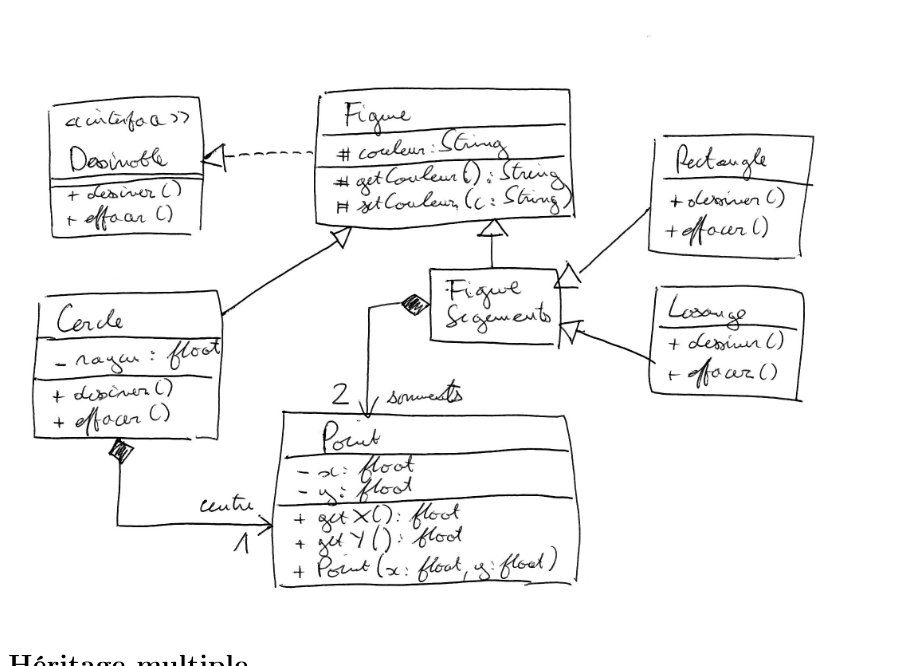 <<interface>>
Dessinable
+ dessiner()
+ effacer()
Figure
# couleur: String
# getCouleur(): String
# setCouleur(c: String)
Rectangle
+ dessiner()
+ effacer()
Cercle
- rayon: float
+ dessiner()
+ effacer()
Figure
Segments
Losange
+ dessiner()
+ effacer()
2 sommets
Point
- x: float
- y: float
+ getX(): float
+ getY(): float
+ Point(x: float, y: float)
centre
1
Héritage multiple